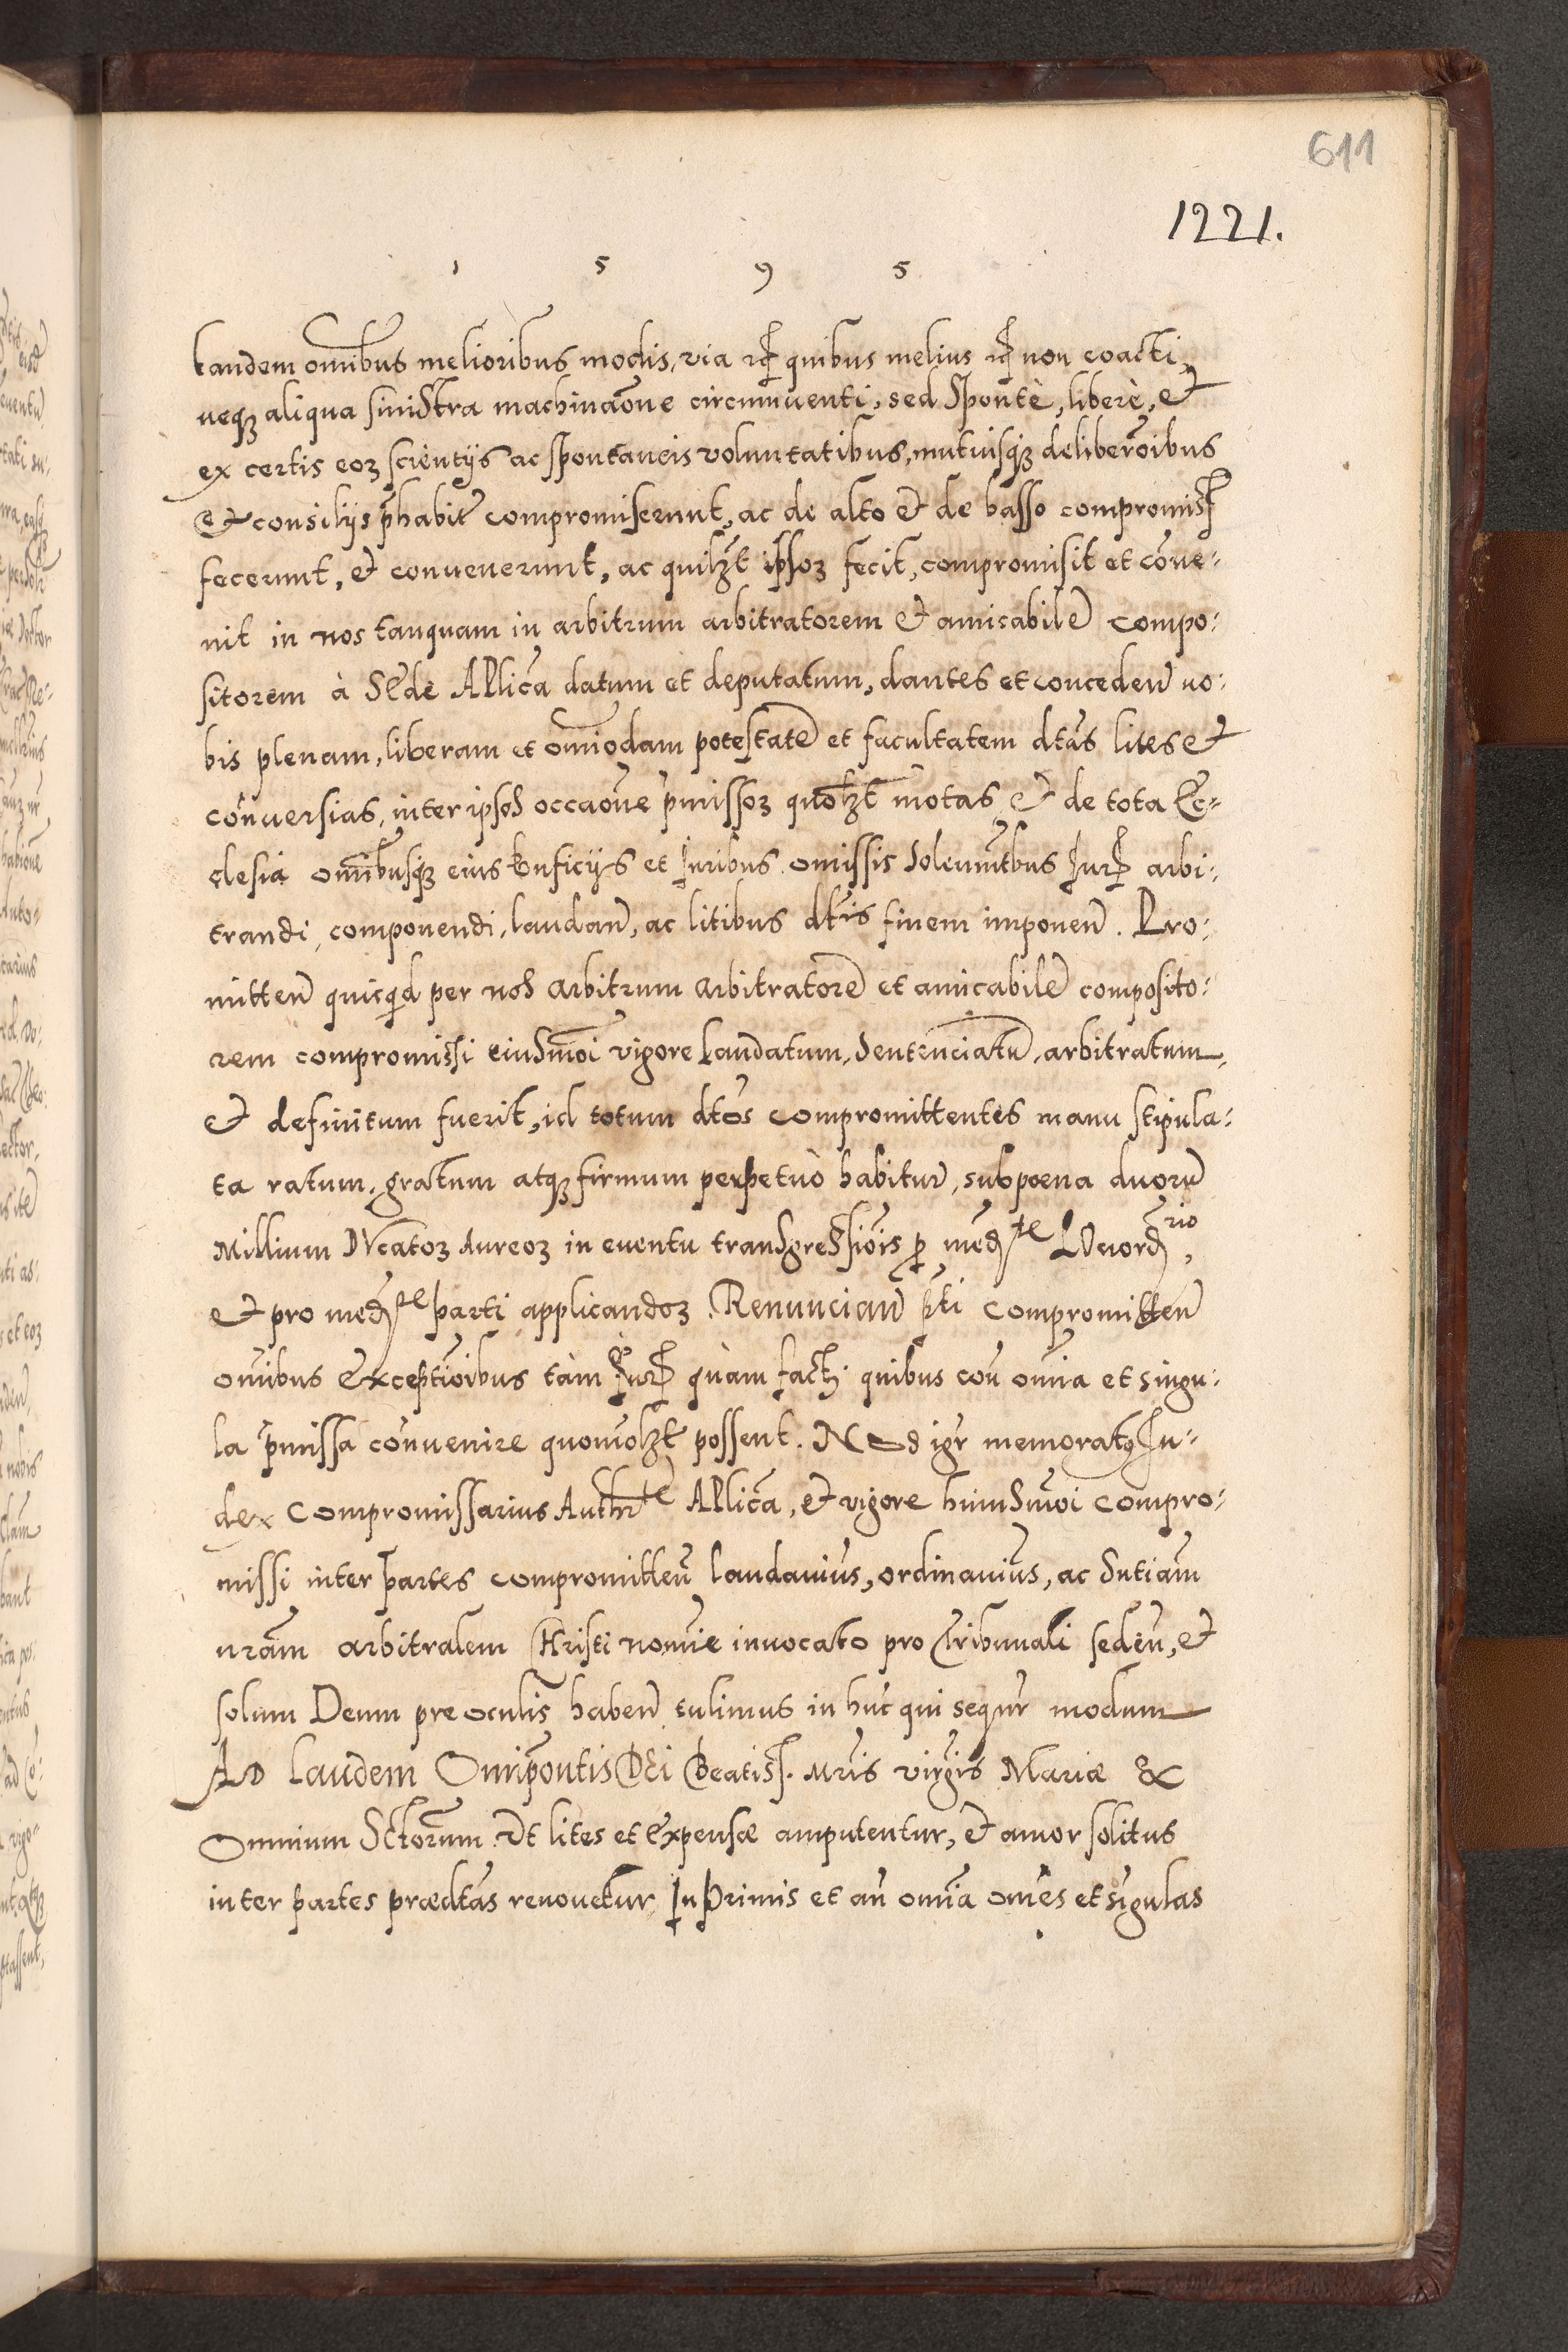 611
1221.
1 5 9 5
tandem omībus melioribus modis, via rc̄ quibus melius rc̄ non coacti,
neqȝ aliqua sinistra machinaōne circumuenti, sed Spontè, liberè, et
ex certis eoȝ scientijs ac spontaneis voluntatibus, mutuisqȝ deliberōibus
et consilijs p̄habit̄ compromiserunt, ac de alto et de basso compromiss̄
fecerunt, et convenerunt, ac quilȝt ipsoȝ fecit, compromisit et cōue-
nit in nos tanquam in arbitrum arbitratorem et amicabilē compo-
sitorem à Sede Apl̄ica datum et deputatum, dantes et conceden̄ no-
bis plenam, liberam et om̄iodam potestatē et facultatem dt̄as lites et
cōnuersias, inter ipsos occaōne p̄missoȝ quolȝt motas, et de tota Ec-
clesia om̄ibusqȝ eius bn̄ficijs et juribus omissis Solemn̄tbus Jur̄ arbi-
trandi, componendi, laudan̄, ac litibus dt̄is finem imponen̄. Pro-
mitten̄ quicqd per nos arbitrum arbitratorē et amicabilē composito-
rem compromissi eiusm̄oi vigore laudatum, Sentenciatū, arbitratum,
et definitum fuerit, id totum dt̄os compromittentes manu stipula-
ta ratum, gratum atqȝ firmum perpetuò habitur̄, sub poena duorū
Millium DVcatoȝ Aureoȝ in euentu transgressiōis p med^te LOuord^rio,
et pro med^te parti applicandoȝ. Renuncian̄ pt̄i compromitten̄
om̄ibus Exceptiōibus tàm Jur̄ quàm facti quibus con̄ om̄ia et singu-
la p̄missa cōnuenire quom̄olȝt possent. NOS igr̄ memoratꝯ Ju-
dex Compromissarius Authr^te Apl̄ica, et vigore huiusm̄oi compro-
missi inter partes compromitten̄ laudauim̄s, ordinauim̄s, ac Sn̄tiam
nr̄am arbitralem CHristi nomīe inuocato pro Tribunali seden̄, et
solum Deum pre oculis haben̄ tulimus in hūc qui sequr̄ modum
AD laudem Omnip̄ontis DEi Beatiss. Mr̄is virgīs Mariæ &
Omnium Sctorum. Ut lites et Expensæ amputentur, et amor solitus
inter partes prædt̄as renouetur. In Primis et an̄ om̄ia om̄es et sīgulas